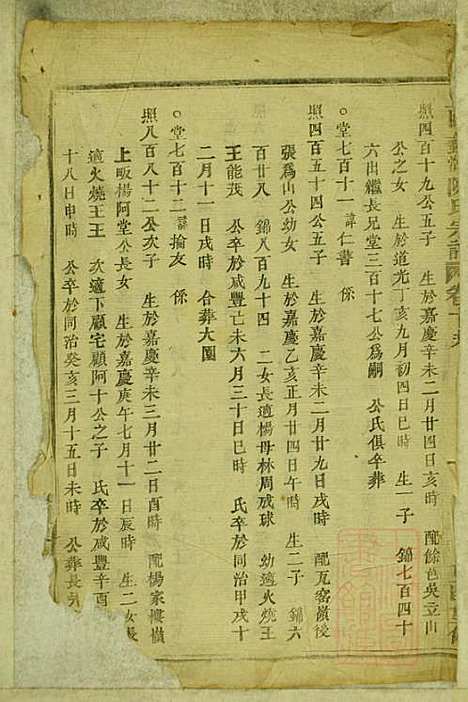 照四百十九公五子　生於嘉慶辛未二月廿四日亥時　配餘邑吳立山
公之女　生於道光丁亥九月初四日巳時　生一子　錦七百四十
六出繼長兄堂三百十七公爲嗣　公氏俱卒葬
○堂七百十一　諱仁書　係
照四百五十四公五子　生於嘉慶辛未二月廿九日戌時　配瓦窑嶺後
張爲山公幼女　生於嘉慶乙亥正月廿四日午時　生二子　錦六
百廿八　錦八百九十四　二女長適楊母林周成球　幼適火燒王
王能茂　公卒於咸豐己未六月三十日巳時　氏卒於同治甲戌十
二月十一日戌時　合葬大園
○堂七百十二　諱掄友　係
照八百八十二公次子　生於嘉慶辛未三月廿二日酉時　配楊家樓橫
上畈楊阿堂公長女　生於嘉慶庚午七月十一日辰時　生二女長
適火燒王王　次適下顧宅顧阿十公之子　氏卒於咸豐辛酉
十八日申時　公卒於同治癸亥三月十五日未時　公葬長